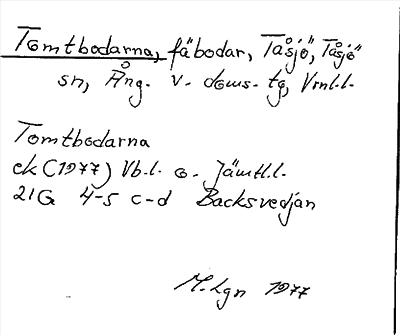 Tomtbodarna, fäbodar, Tåsjö, Tåsjö
sn, Ång. v. doms. tg, Vrnl.l.
Tomtbodarna
ek (1977) Vb.l. o. Jämtl.l.
21G 4-5 c-d Backsvedjan
M. Lgn 1977